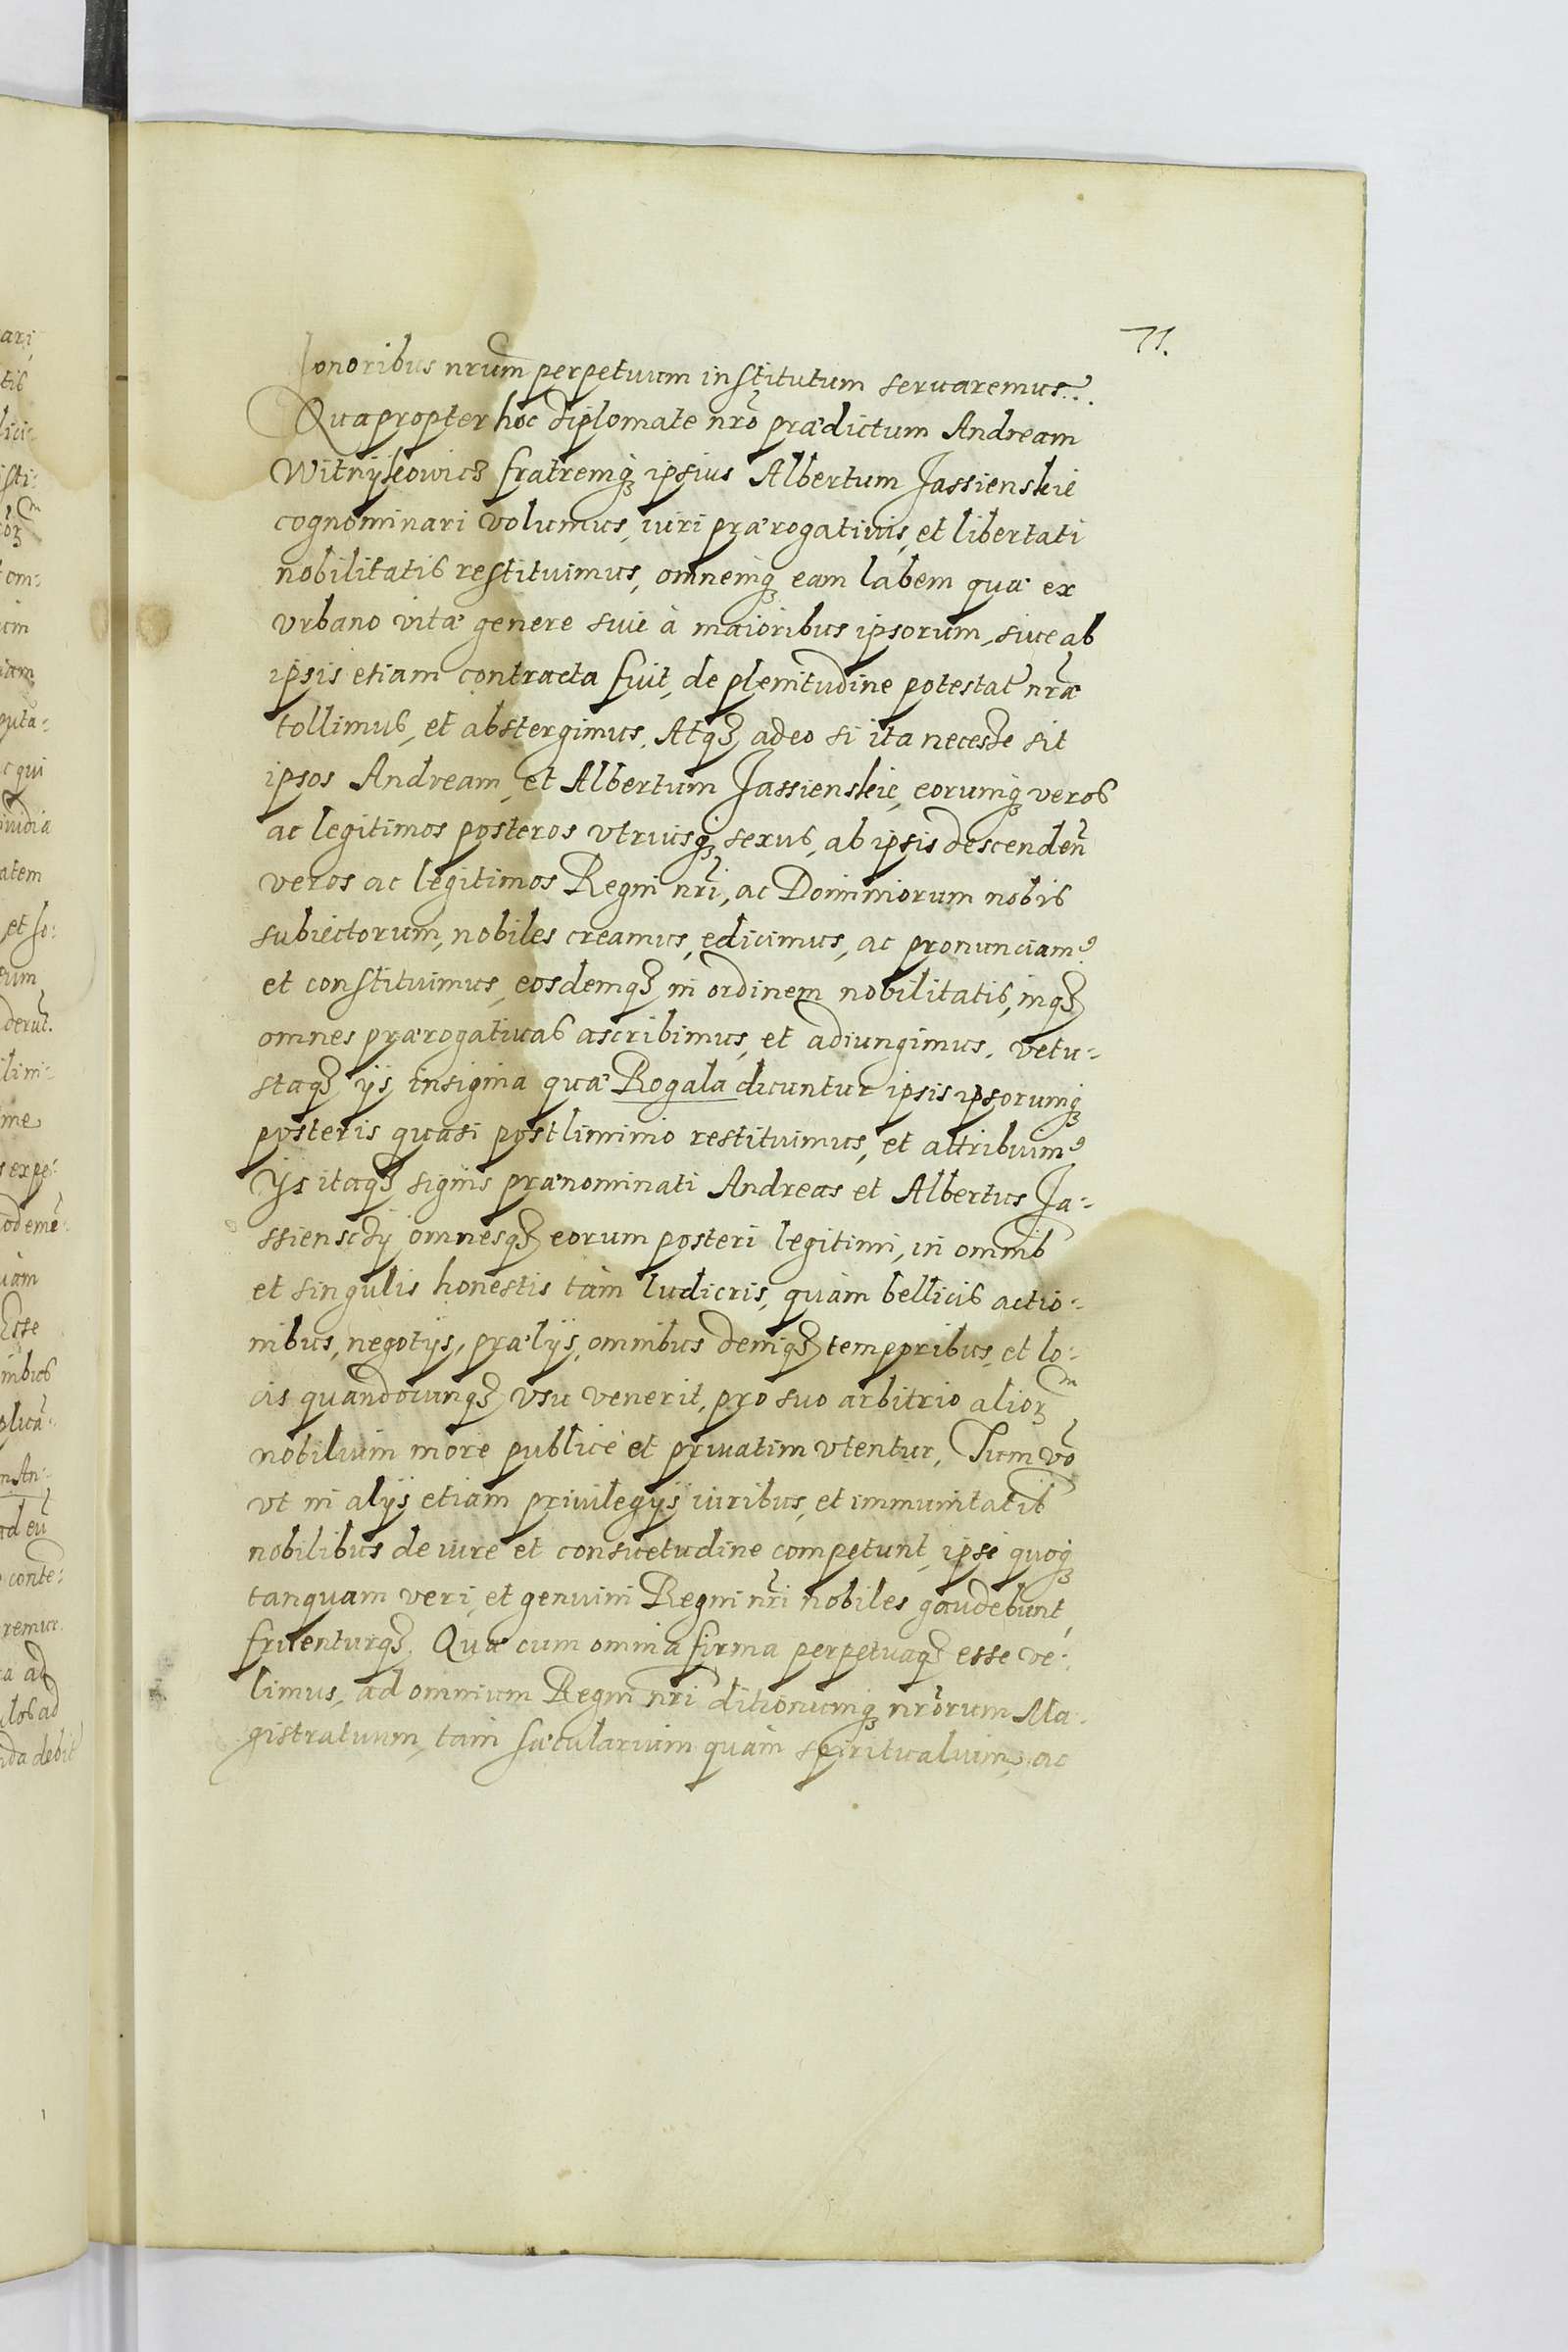 71.
onoribus nrum̃ perpetuum institutum seruaremus.
Quapropter hoc diplomate nrõ prædictum Andream
Witnykowicz fratremq́ꝫ ipsius Albertum Jassienskie
cognominari volumus, iuri prærogatiuis, et libertati
nobilitatis restituimus, omnemq́ꝫ eam labem quæ ex
vrbano vitæ genere siue à maioribus ipsorum, siue ab
ipsis etiam contracta fuit, de plenitudine potestat̃ nræ̃
tollimus, et abstergimus. Atqꝫ adeo si ita necesse sit
ipsos Andream, et Albertum Jassienskie, eorumq́ꝫ veros
ac legitimos posteros vtriusq́ꝫ sexus, ab ipsis descendeñ
veros ac legitimos Regni nrĩ, ac Dominiorum nobis
subiectorum, nobiles creamus, edicimus, ac pronunciamꝰ
et constituimus, eosdemqꝫ in ordinem nobilitatis, inqꝫ
omnes prærogatiuas ascribimus, et adiungimus. vetu-
staqꝫ ijs insignia quæ Rogala dicuntur ipsis ipsorumq́ꝫ
posteris quasi postliminio restituimus, et attribuimꝰ
Ijs itaqꝫ signis prænominati Andreas et Albertus Ja-
ssienscÿ omnesqꝫ eorum posteri legitimi, in omnib
et singulis honestis tàm ludicris, quàm bellicis actio-
nibus, negotijs, prælijs, omnibus deniqꝫ temporibus, et lo-
cis quandocunqꝫ vsu venerit, pro suo arbitrio alioꝝm
nobilium more publicè et priuatim vtentur, Tum võ
vt in alijs etiam priuilegijs iuribus, et immunitatib
nobilibus de iure et consuetudine competunt, ipsi quoq́ꝫ
tanquam veri, et genuini Regni nrĩ nobiles gaudebunt,
fruenturqꝫ. Quæ cum omnia firma perpetuaqꝫ esse ve-
limus, ad omnium Regni nrĩ ditionumq́ꝫ nrõrum Ma-
gistratuum, tàm sæcularium quàm spiritualium, ac